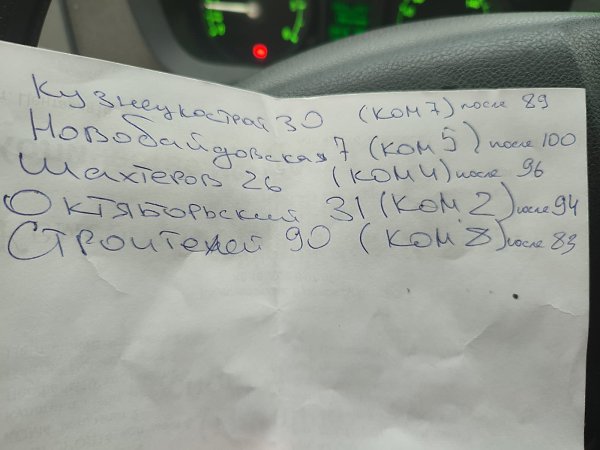 Кузнецкострой 30 (КОМ 7) после 89
Новобайдовская 7 (КОМ 5) после 100
Шахтеров 26 (КОМ 4) после 96
Октяборьский 31 (КОМ 2) после 94
Строителей 90 (КОМ 8) после 83